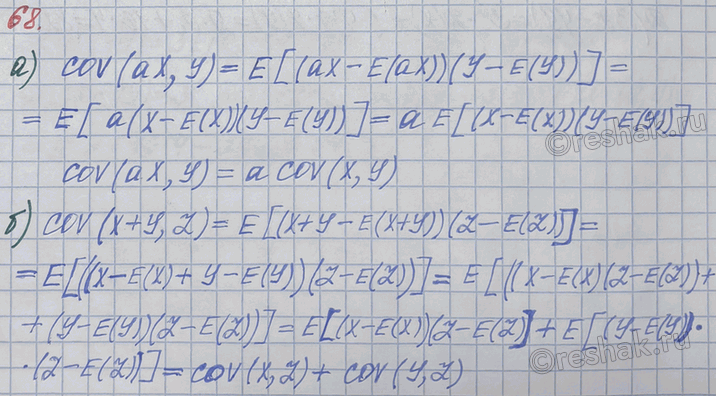 68.
а) cov(aX, Y) = E[(aX − E(aX))(Y − E(Y))] =
= E[a(X − E(X))(Y − E(Y))] = a E[(X − E(X))(Y − E(Y))]
cov(aX, Y) = a cov(X, Y)
б) cov(X+Y, Z) = E[(X+Y − E(X+Y))(Z − E(Z))] =
= E[((X − E(X) + Y − E(Y))(Z − E(Z))] = E[((X − E(X)(Z − E(Z)) +
+ (Y − E(Y))(Z − E(Z))] = E[(X − E(X))(Z − E(Z)] + E[(Y − E(Y))·
·(Z − E(Z))] = cov(X, Z) + cov(Y, Z)
©reshak.ru
©reshak.ru